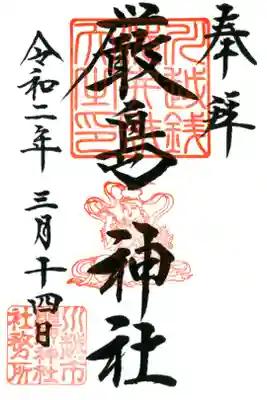 奉拝
厳島神社
令和二年 三月十四日
川越市
熊野神社
社務所